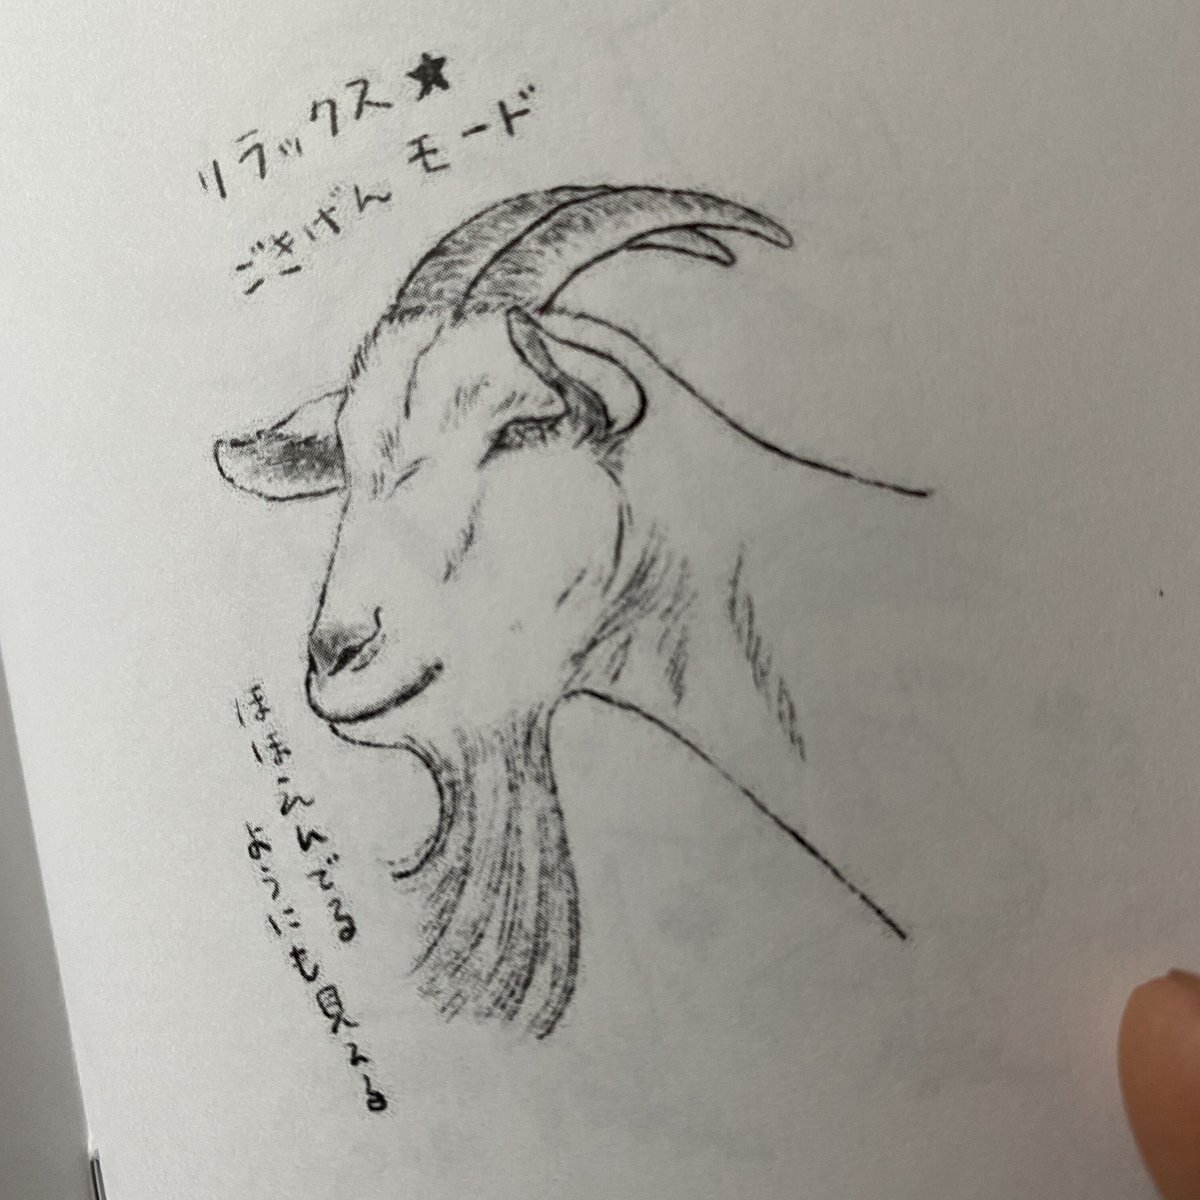 リラックス★
ごきげんモード
ほほえんでる
ようにも見える